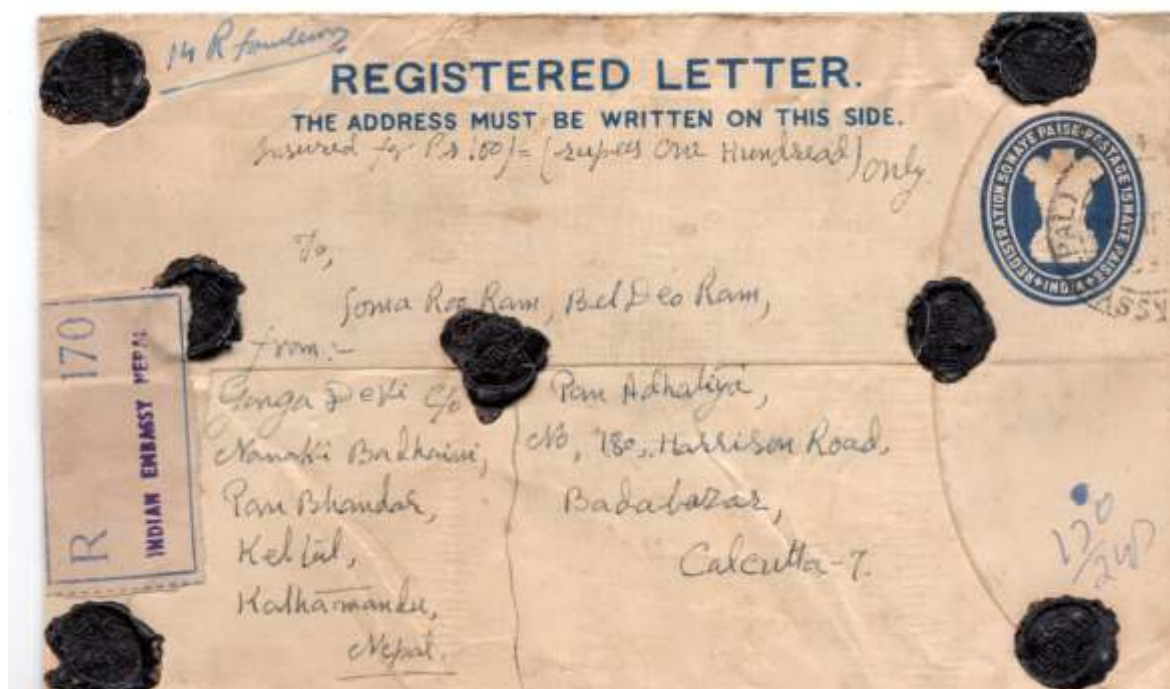 14 R
REGISTERED LETTER.
THE ADDRESS MUST BE WRITTEN ON THIS SIDE.
Insured for Rs 100/= (rupees One Hundread) only.
REGISTRATION 50 NAYE PAISE · POSTAGE 15 NAYE PAISE
PAL)
To,
Soma Roo Ram, Bel Deo Ram,
Pan Adhatiya,
No, 180, Harrison Road,
Badabazar,
Calcutta-7.
from:-
Ganga Devi C/o
Nanaki Badhaini,
Pan Bhandar,
Keltal,
Kathamandu,
Nepal.
R 170
INDIAN EMBASSY NEPAL
170